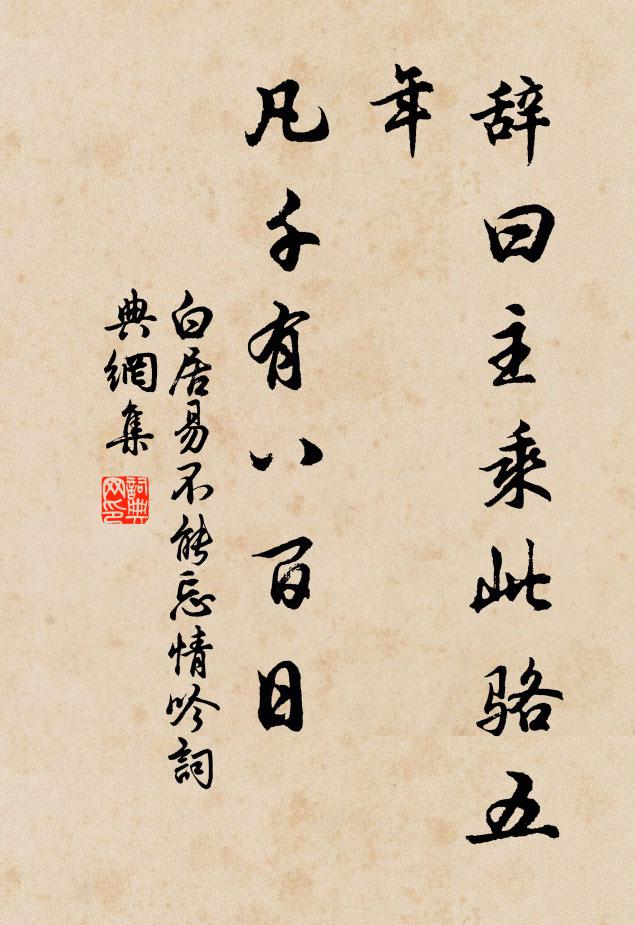 辞曰主乘此骆五
年
凡千有八百日
白居易不能忘情吟詞
典網集
詞典网印